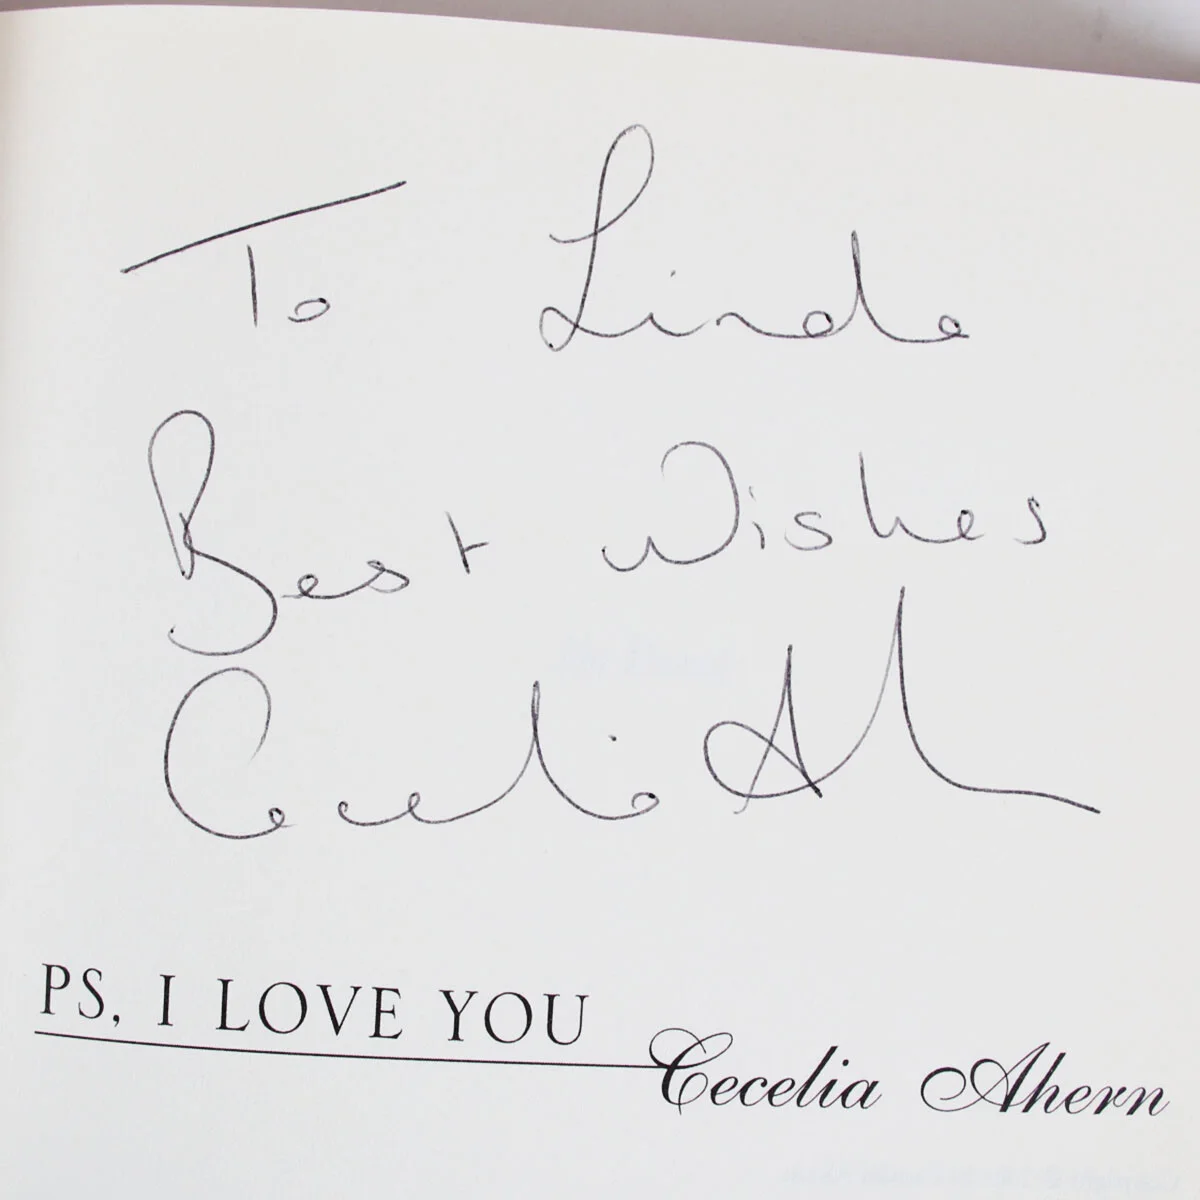 To Linda
Best Wishes
Cecelia Ahern
PS, I LOVE YOU
Cecelia Ahern